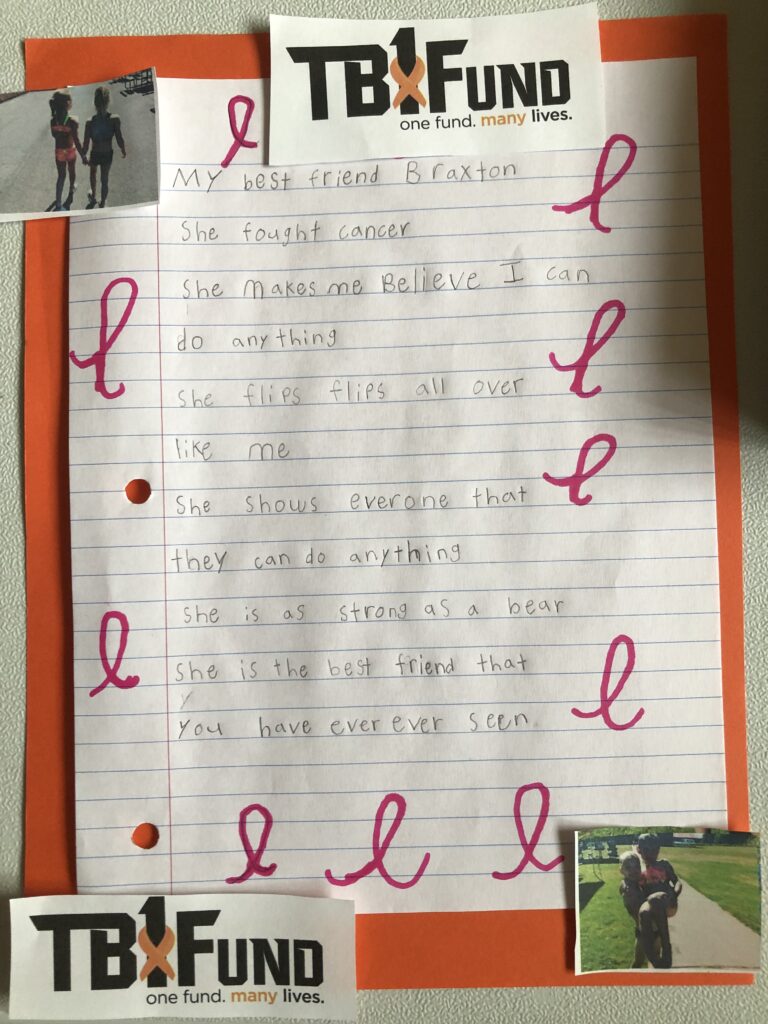 TB1FUND
one fund. many lives.
My best friend Braxton
She fought cancer
She makes me Believe I can
do anything
She flips flips all over
like me
She shows everone that
they can do anything
She is as strong as a bear
She is the best friend that
you have ever ever seen.
TB1FUND
one fund. many lives.